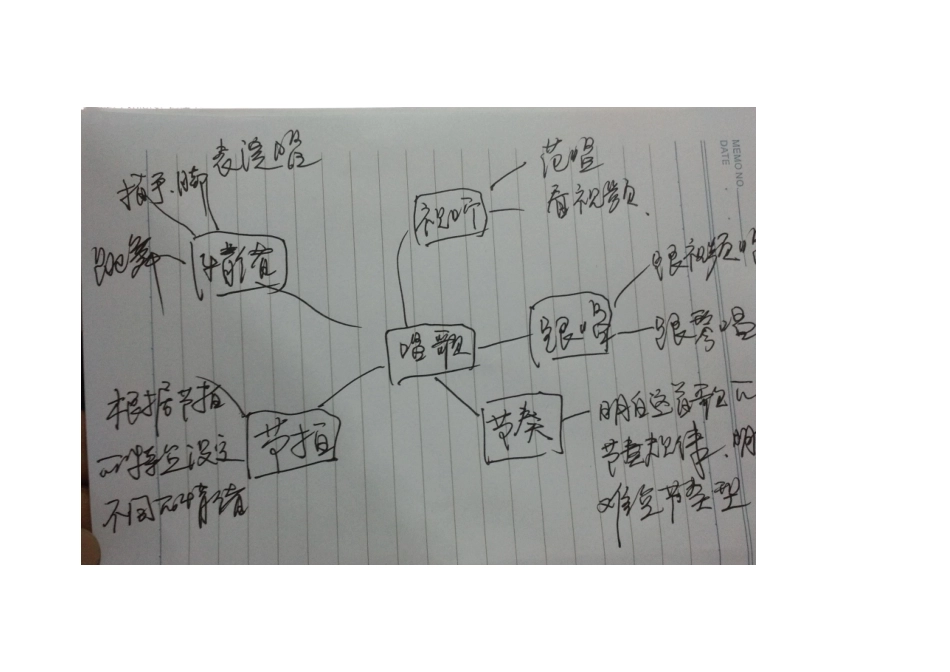 MEMO NO.
DATE
表演唱
拍手、脚
跳舞
情绪
范唱
看视频、
视听
跟视频唱
跟琴唱
跟唱
唱歌
节奏
明白这首歌的
节奏规律、明
难点节奏型
节拍
根据节拍
的特点设定
不同的情绪